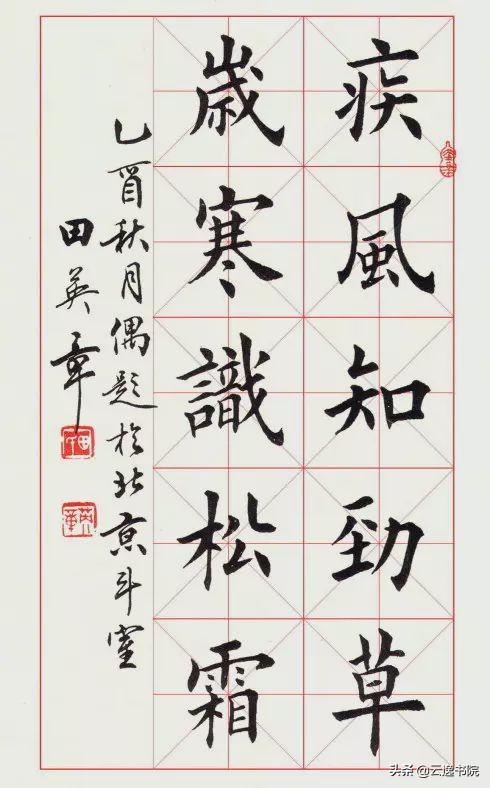 疾風知勁草
嵗寒識松霜
乙酉秋月偶题於北京斗室
田英章
头条@云逸书院